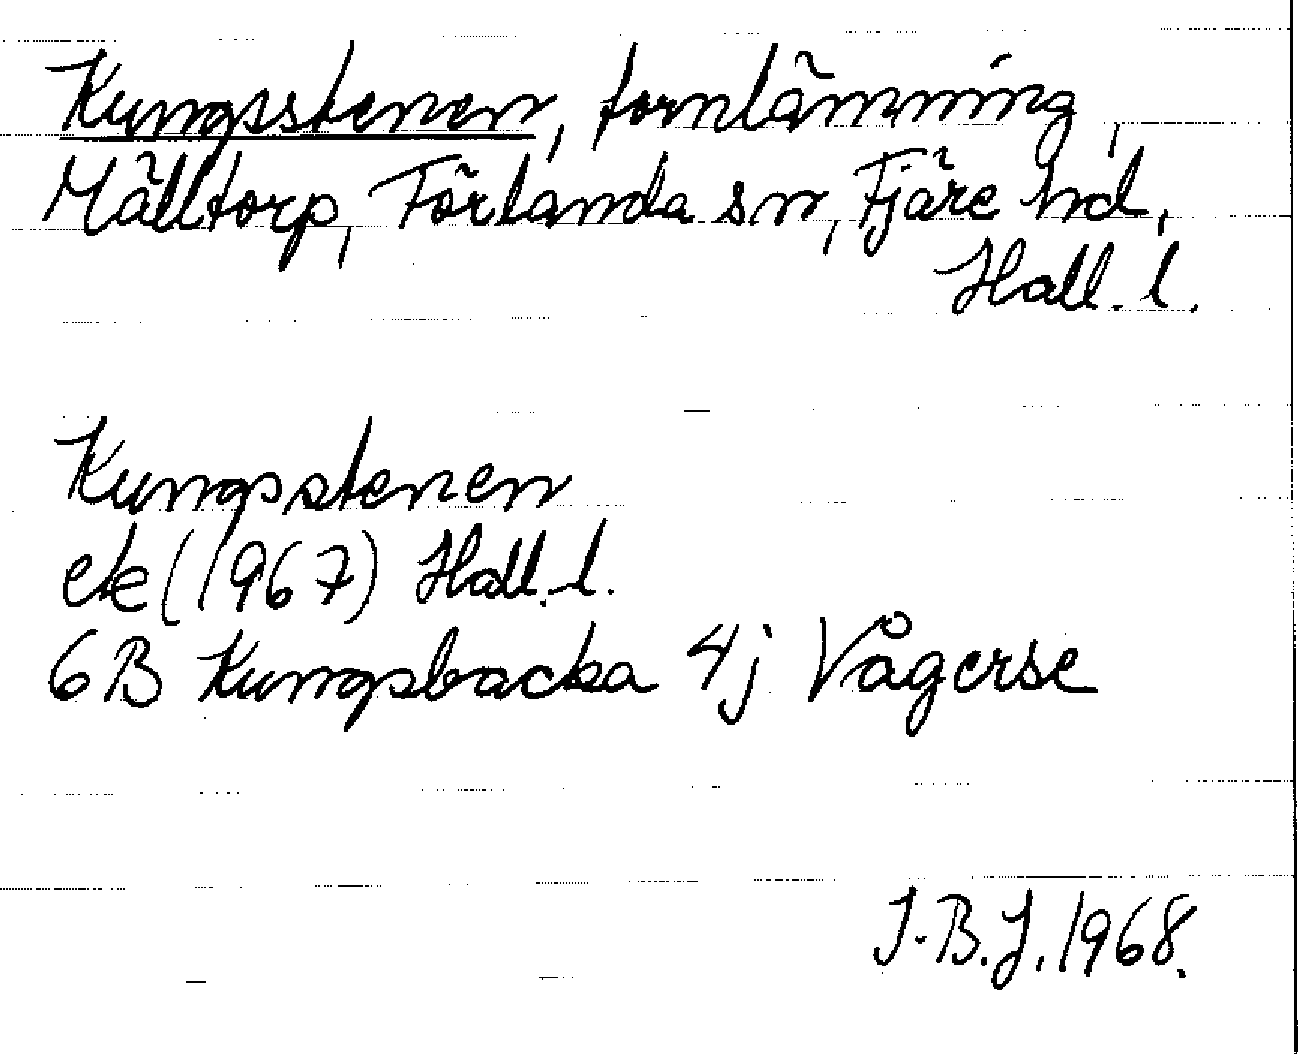 Kungsstenen, fornlämning,
Mälltorp, Förlanda sn, Fjäre hd,
Hall. l.
Kungsstenen
ek (1967) Hall. l.
6B Kungsbacka 4j Vågerse
I.-B. J. 1968.